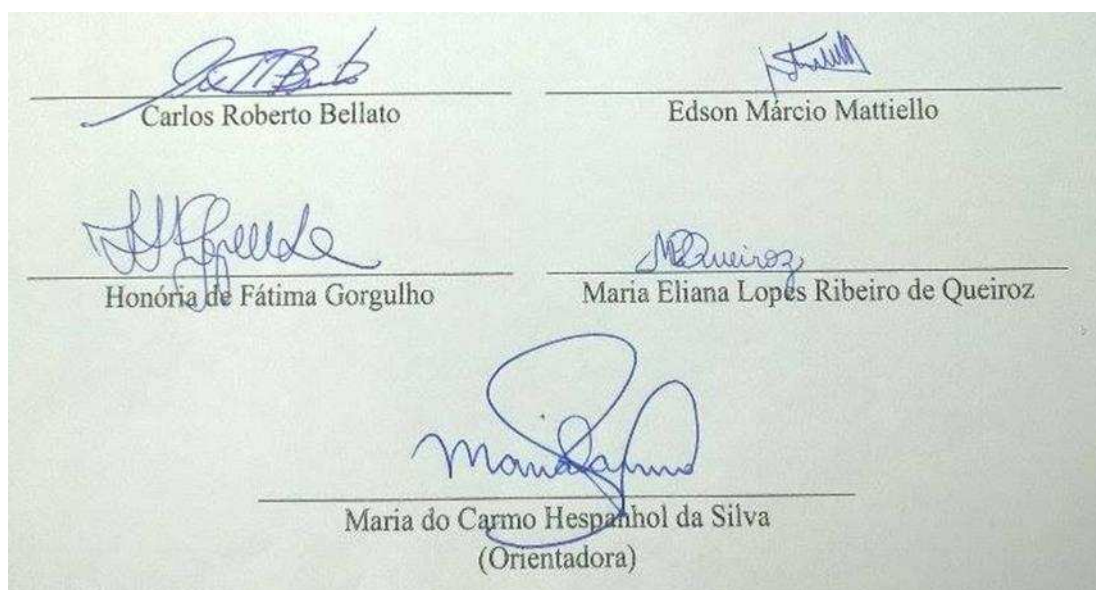 Carlos Roberto Bellato
Edson Márcio Mattiello
MQueiroz
Honória de Fátima Gorgulho
Maria Eliana Lopes Ribeiro de Queiroz
Maria do Carmo Hespanhol da Silva
(Orientadora)